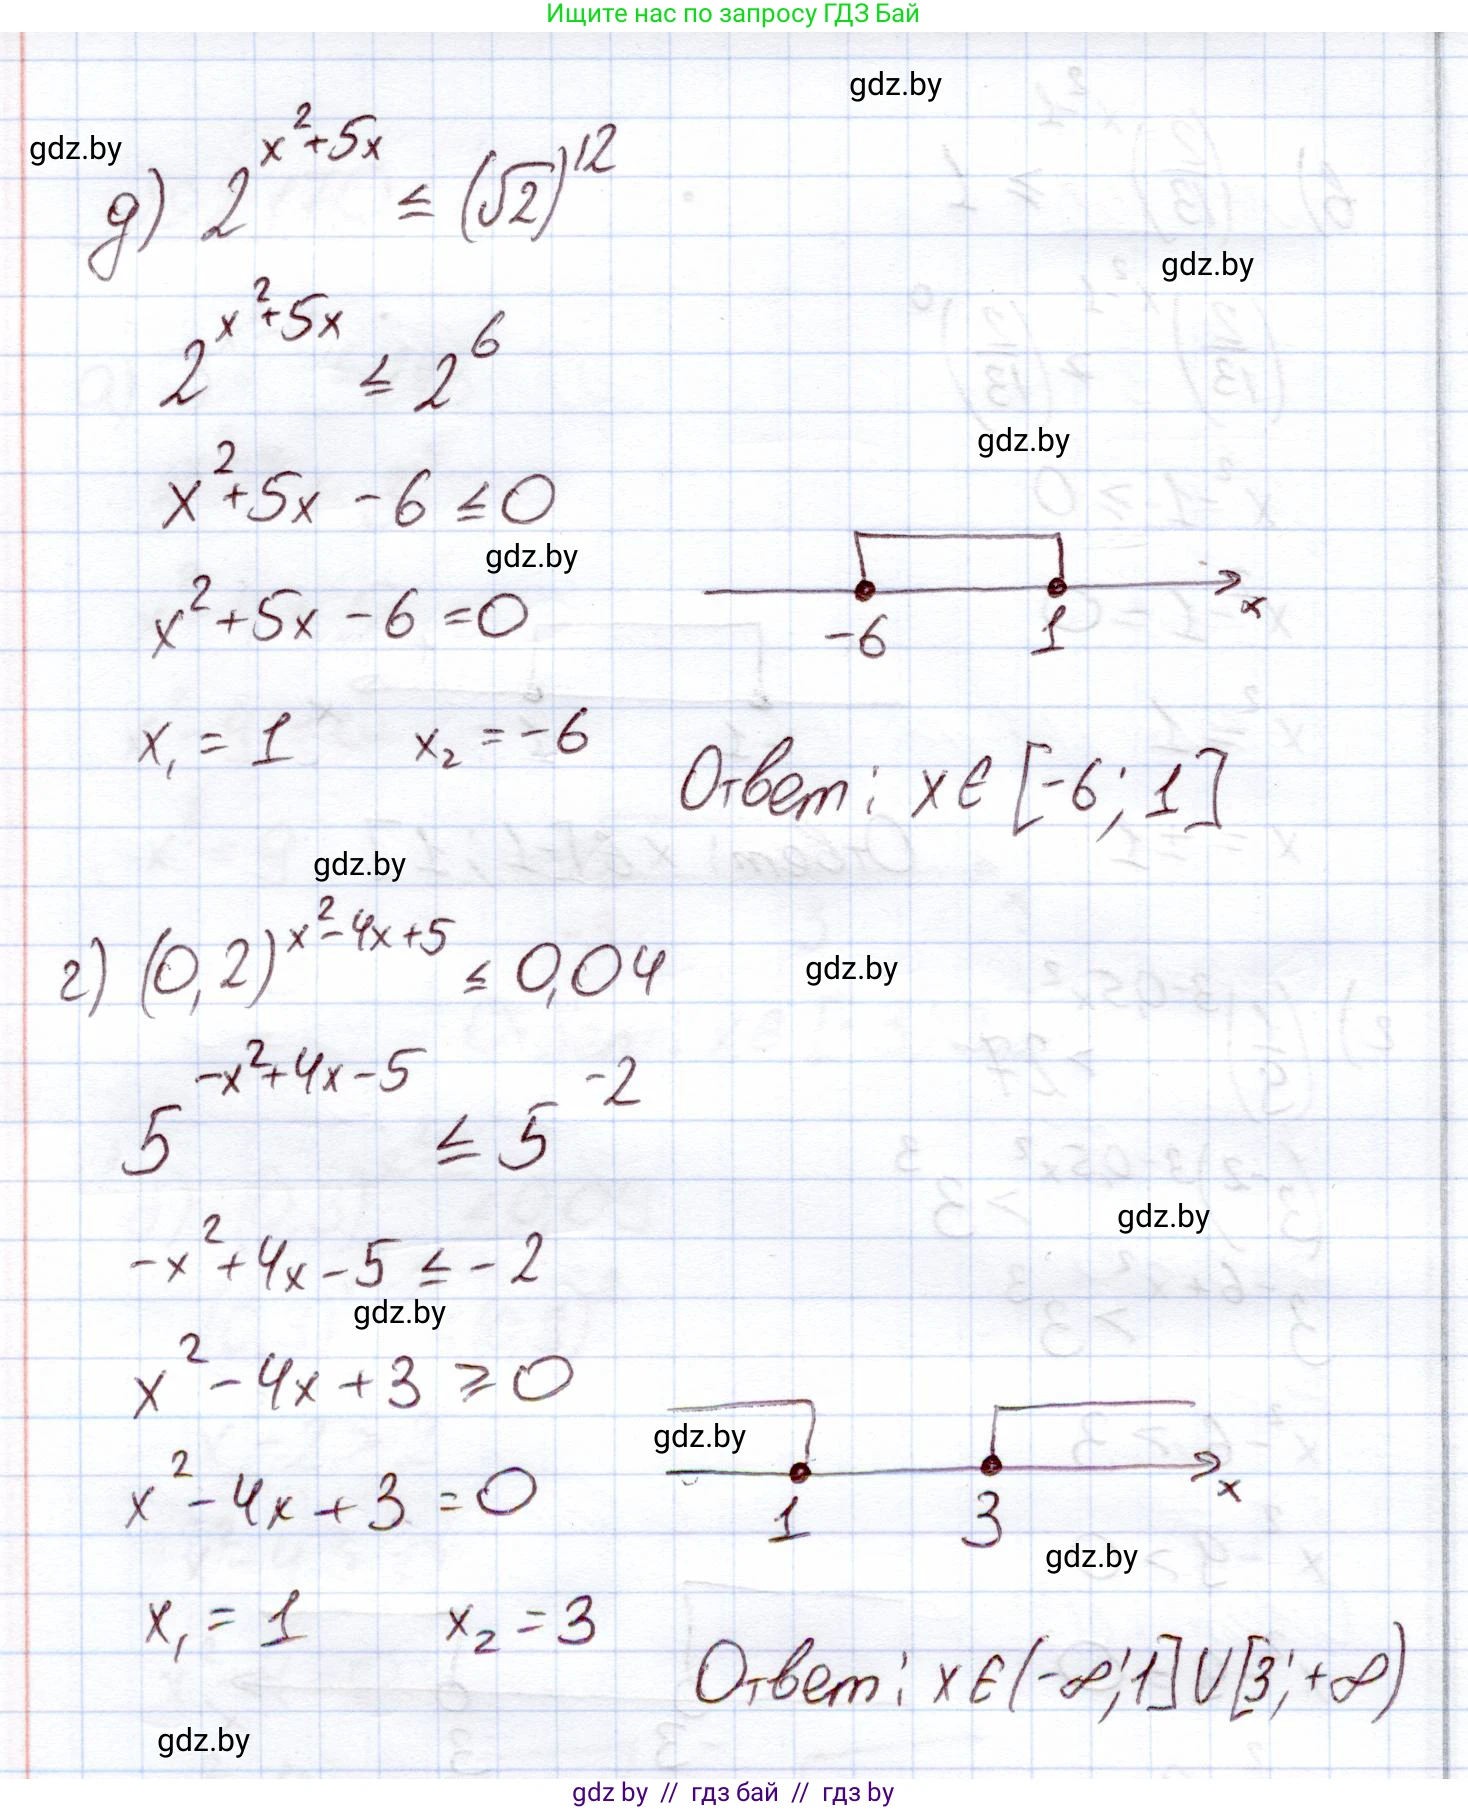 Ищите нас по запросу ГДЗ Бай
gdz.by
gdz.by
д) 2^(x²+5x) ≤ (√2)^12
gdz.by
2^(x²+5x) ≤ 2^6
gdz.by
x²+5x-6 ≤ 0
gdz.by
x²+5x-6=0
-6 1 x
x₁ = 1 x₂ = -6
Ответ: x ∈ [-6; 1]
gdz.by
г) (0,2)^(x²-4x+5) ≤ 0,04
gdz.by
5^(-x²+4x-5) ≤ 5^(-2)
gdz.by
-x²+4x-5 ≤ -2
gdz.by
x²-4x+3 ≥ 0
gdz.by
x²-4x+3=0
1 3 x
gdz.by
x₁ = 1 x₂ = 3
Ответ: x ∈ (-∞; 1] ∪ [3; +∞)
gdz.by
gdz by // гдз бай // гдз by